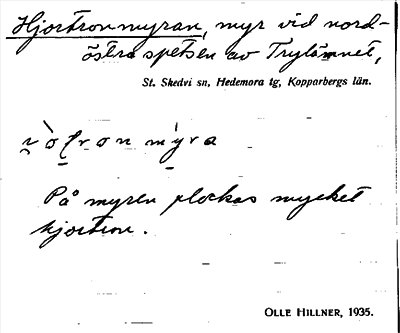 Hjortronmyran, myr vid nord-
östra spetsen av Trytämnet,
St. Skedvi sn, Hedemora tg, Kopparbergs län.
myra
På myren plockas mycket
hjortron.
OLLE HILLNER, 1935.